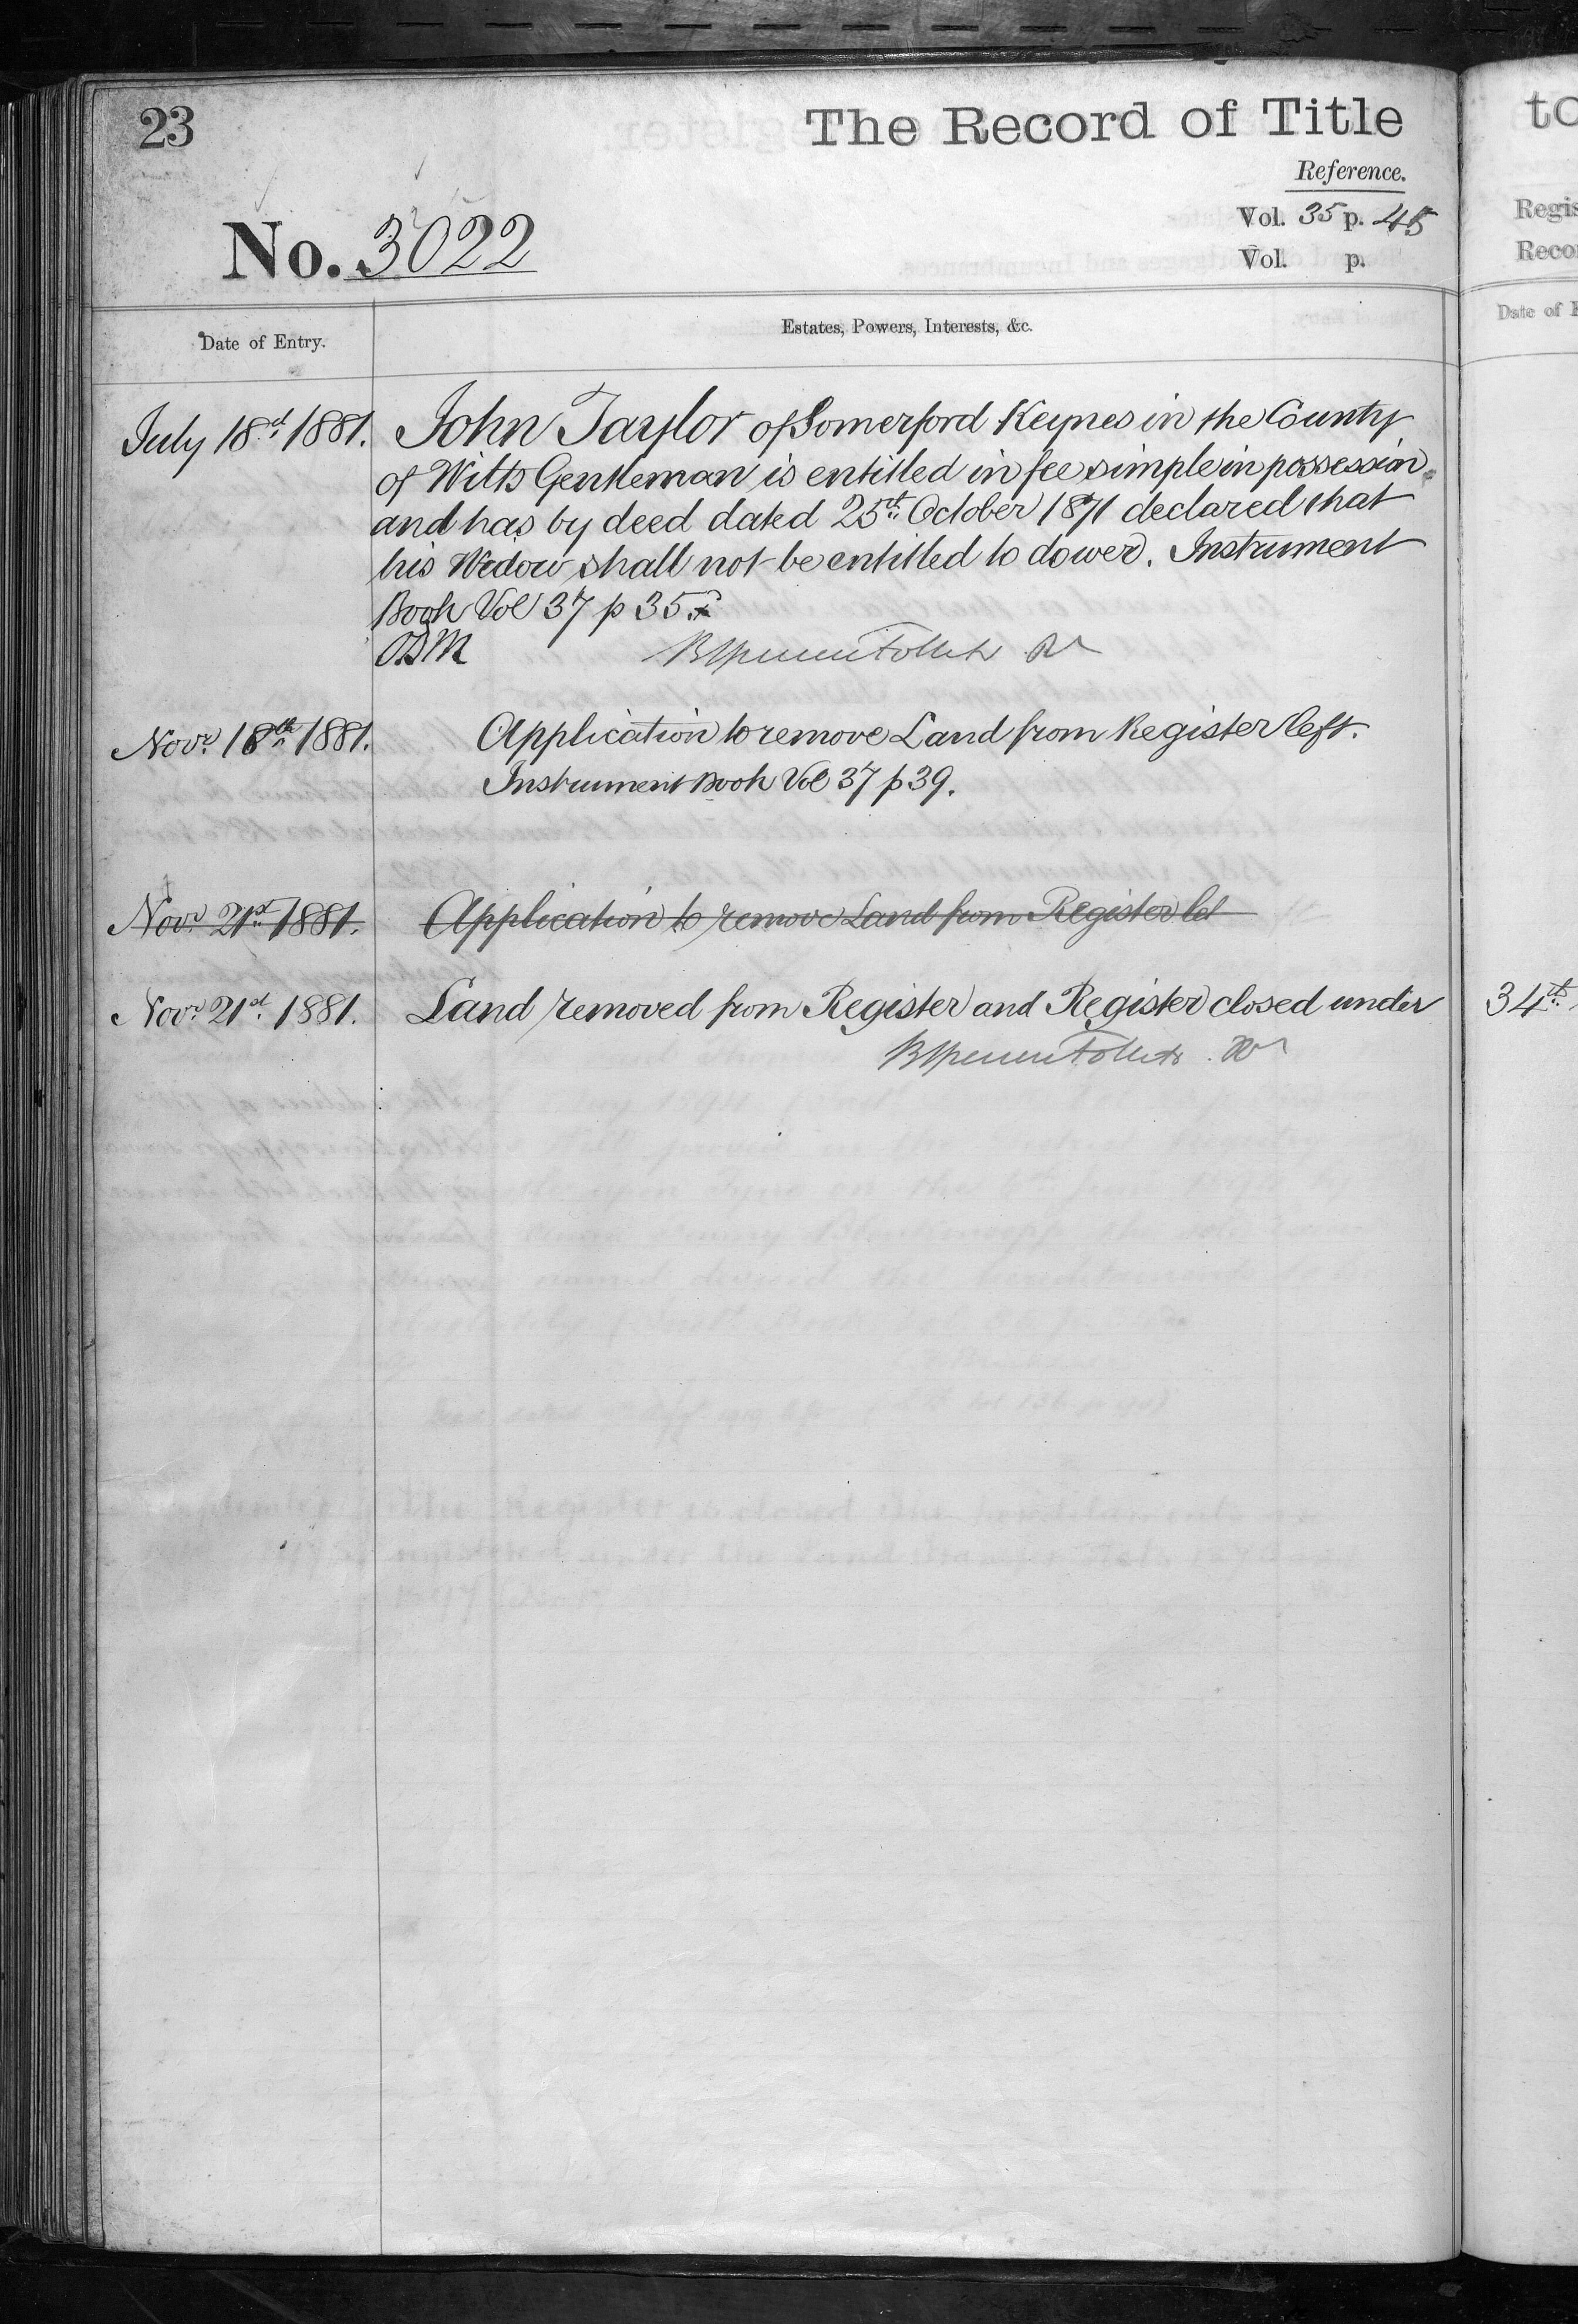 23
The Record of Title
Reference.
Vol. 35 p. 45
Vol. p.
No. 3022
Date of Entry.
Estates, Powers, Interests, &c.
July 18th 1881. John Taylor of Somerford Keynes in the County
of Wilts Gentleman is entitled in fee simple in possession
and has by deed dated 25th October 1871 declared that
his Widow shall not be entitled to dower. Instrument
Book Vol 37 p 35.
Novr 18th 1881. Application to remove Land from Register left.
Instrument Book Vol 37 p 39.
Novr 21st 1881. Application to remove Land from Register
Novr 21st 1881. Land removed from Register and Register closed under
Brent Spencer Follett R
to
Regis
Recor
Date of E
34th